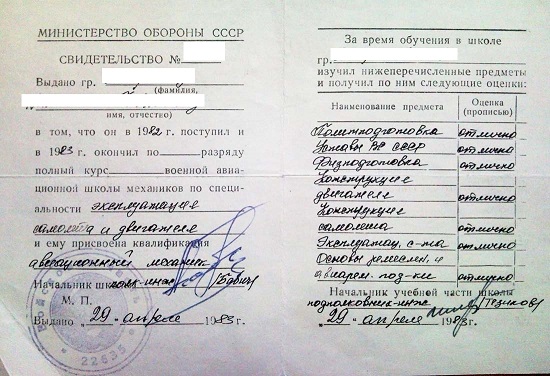 МИНИСТЕРСТВО ОБОРОНЫ СССР
СВИДЕТЕЛЬСТВО №
Выдано гр.
(фамилия,
имя, отчество)
в том, что он в 1982 г. поступил и
в 1983 г. окончил по разряду
полный курс военной авиа-
ционной школы механиков по специ-
альности эксплуатация
самолета и двигателя
и ему присвоена квалификация
авиационный механик
Начальник школы
М. П.
Выдано „29" апреля 1983 г.
22635
За время обучения в школе
гр.
изучил нижеперечисленные предметы
и получил по ним следующие оценки:
Наименование предмета
Оценка
(прописью)
Политподготовка отлично
Уставы ВС СССР отлично
Физподготовка отлично
Конструкция
двигателя отлично
Конструкция
самолета отлично
Эксплуатац. с-та отлично
Основы ремеслен. и
отлично
Начальник учебной части школы
подполковник-инж
„29" апреля 1983 г.